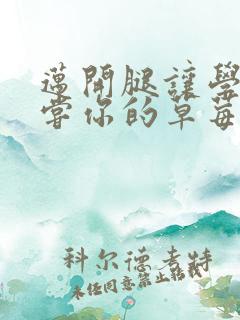 邁開腿讓學
嘗你的草莓
科尔德孝特
未经同意禁止转载